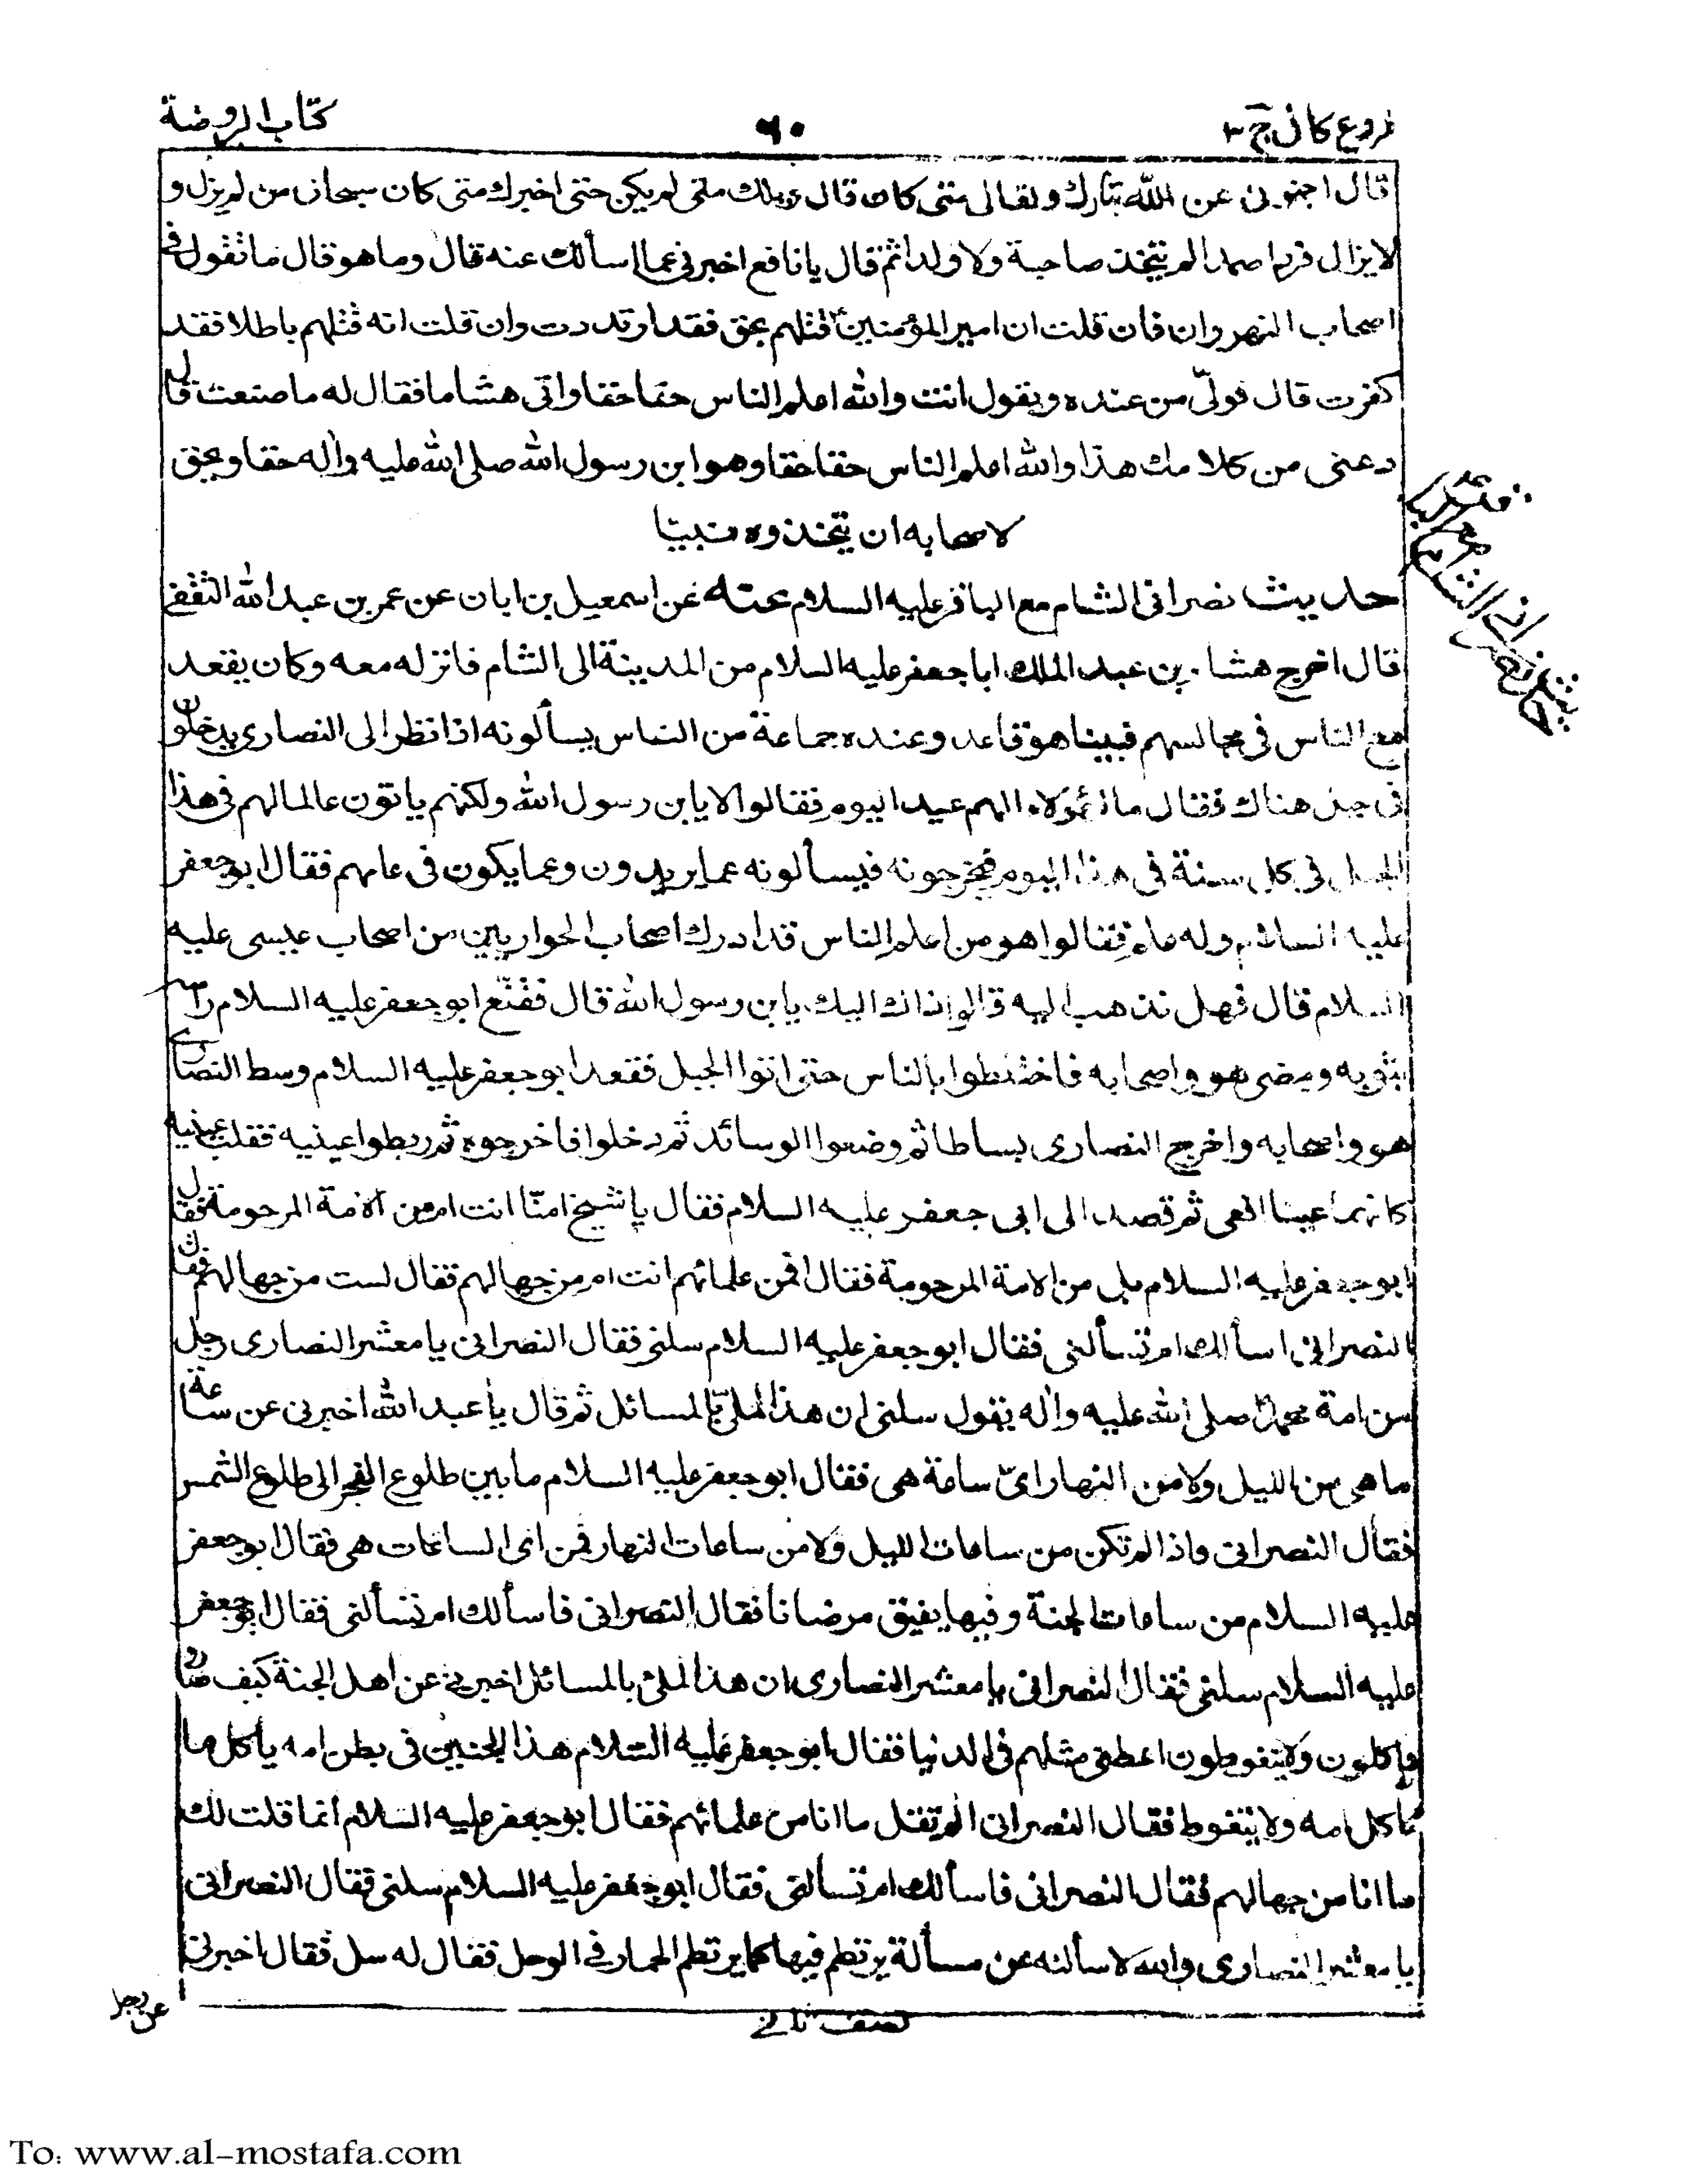 فروع كافى ج ٣
٦٠
كتاب الروضة
قال اخبرنى عن الله تبارك وتعالى متى كان قال ويلك متى لم يكن حتى اخبرك متى كان سبحان من لم يزل و
لا يزال فردا صمدا لم يتخذ صاحبة ولا ولدا ثم قال يا نافع اخبرنى عما اسألك عنه قال وما هو قال ما تقول فى
اصحاب النهروان فان قلت ان امير المؤمنين قتلهم بحق فقد ارتددت وان قلت انه قتلهم باطلا فقد
كفرت قال فولّى من عنده ويقول انت والله اعلم الناس حقا حقا واتى هشاما فقال له ما صنعت قال
دعنى من كلامك هذا والله اعلم الناس حقا حقا وهو ابن رسول الله صلى الله عليه وآله حقا ويحق
لاصحابه ان يتخذوه نبيا
حديث نصرانى الشام مع الباقر عليه السلام عنه عن اسمعيل بن ابان عن عمر بن عبد الله الثقفى
قال اخرج هشام بن عبد الملك ابا جعفر عليه السلام من المدينة الى الشام فانزله معه وكان يقعد
مع الناس فى مجالسهم فبينا هو قاعد وعنده جماعة من الناس يسألونه اذا نظر الى النصارى يدخلون
فى جبل هناك فقال ما لهؤلاء الهم عيد اليوم فقالوا لا يا بن رسول الله ولكنهم ياتون عالما لهم فى هذا
الجبل فى كل سنة فى هذا اليوم فيخرجونه فيسألونه عما يريدون وعما يكون فى عامهم فقال ابو جعفر
عليه السلام وله علم فقالوا هو من اعلم الناس قد ادرك اصحاب الحواريين من اصحاب عيسى عليه
السلام قال فهل نذهب اليه قالوا ذاك اليك يا بن رسول الله قال فقنّع ابو جعفر عليه السلام رأسه
بثوبه ومضى هو واصحابه فاختلطوا بالناس حتى اتوا الجبل فقعد ابو جعفر عليه السلام وسط النصارى
هو واصحابه واخرج النصارى بساطا ثم وضعوا الوسائد ثم دخلوا فاخرجوه ثم ربطوا عينيه فقلب عينيه
كانهما عينا افعى ثم قصد الى ابى جعفر عليه السلام فقال يا شيخ امنّا انت ام من الامة المرحومة فقال
ابو جعفر عليه السلام بلى من الامة المرحومة فقال افمن علمائهم انت ام من جهالهم فقال لست من جهالهم فقال
النصرانى اسألك ام تسألنى فقال ابو جعفر عليه السلام سلنى فقال النصرانى يا معشر النصارى رجل
من امة محمد صلى الله عليه وآله يقول سلنى ان هذا لملىّ بالمسائل ثم قال يا عبد الله اخبرنى عن ساعة
ما هى من الليل ولا من النهار اىّ ساعة هى فقال ابو جعفر عليه السلام ما بين طلوع الفجر الى طلوع الشمس
فقال النصرانى فاذا لم تكن من ساعات الليل ولا من ساعات النهار فمن اى الساعات هى فقال ابو جعفر
عليه السلام من ساعات الجنة وفيها يفيق مرضانا فقال النصرانى فاسألك ام تسألنى فقال ابو جعفر
عليه السلام سلنى فقال النصرانى يا معشر النصارى ان هذا لملئ بالمسائل اخبرنى عن اهل الجنة كيف صاروا
ياكلون ولا يتغوطون اعطنى مثلهم فى الدنيا فقال ابو جعفر عليه السلام هذا الجنين فى بطن امه يأكل مما
تاكل امه ولا يتغوط فقال النصرانى الم تقل ما انا من علمائهم فقال ابو جعفر عليه السلام انما قلت لك
ما انا من جهالهم فقال النصرانى فاسألك ام تسألنى فقال ابو جعفر عليه السلام سلنى فقال النصرانى
يا معشر النصارى والله لاسألنه عن مسألة يرتطم فيها كما يرتطم الحمار فى الوحل فقال له سل فقال اخبرنى
عن رجل
نصف ثانى
حديث نصرانى الشام مع الباقر
To: www.al-mostafa.com